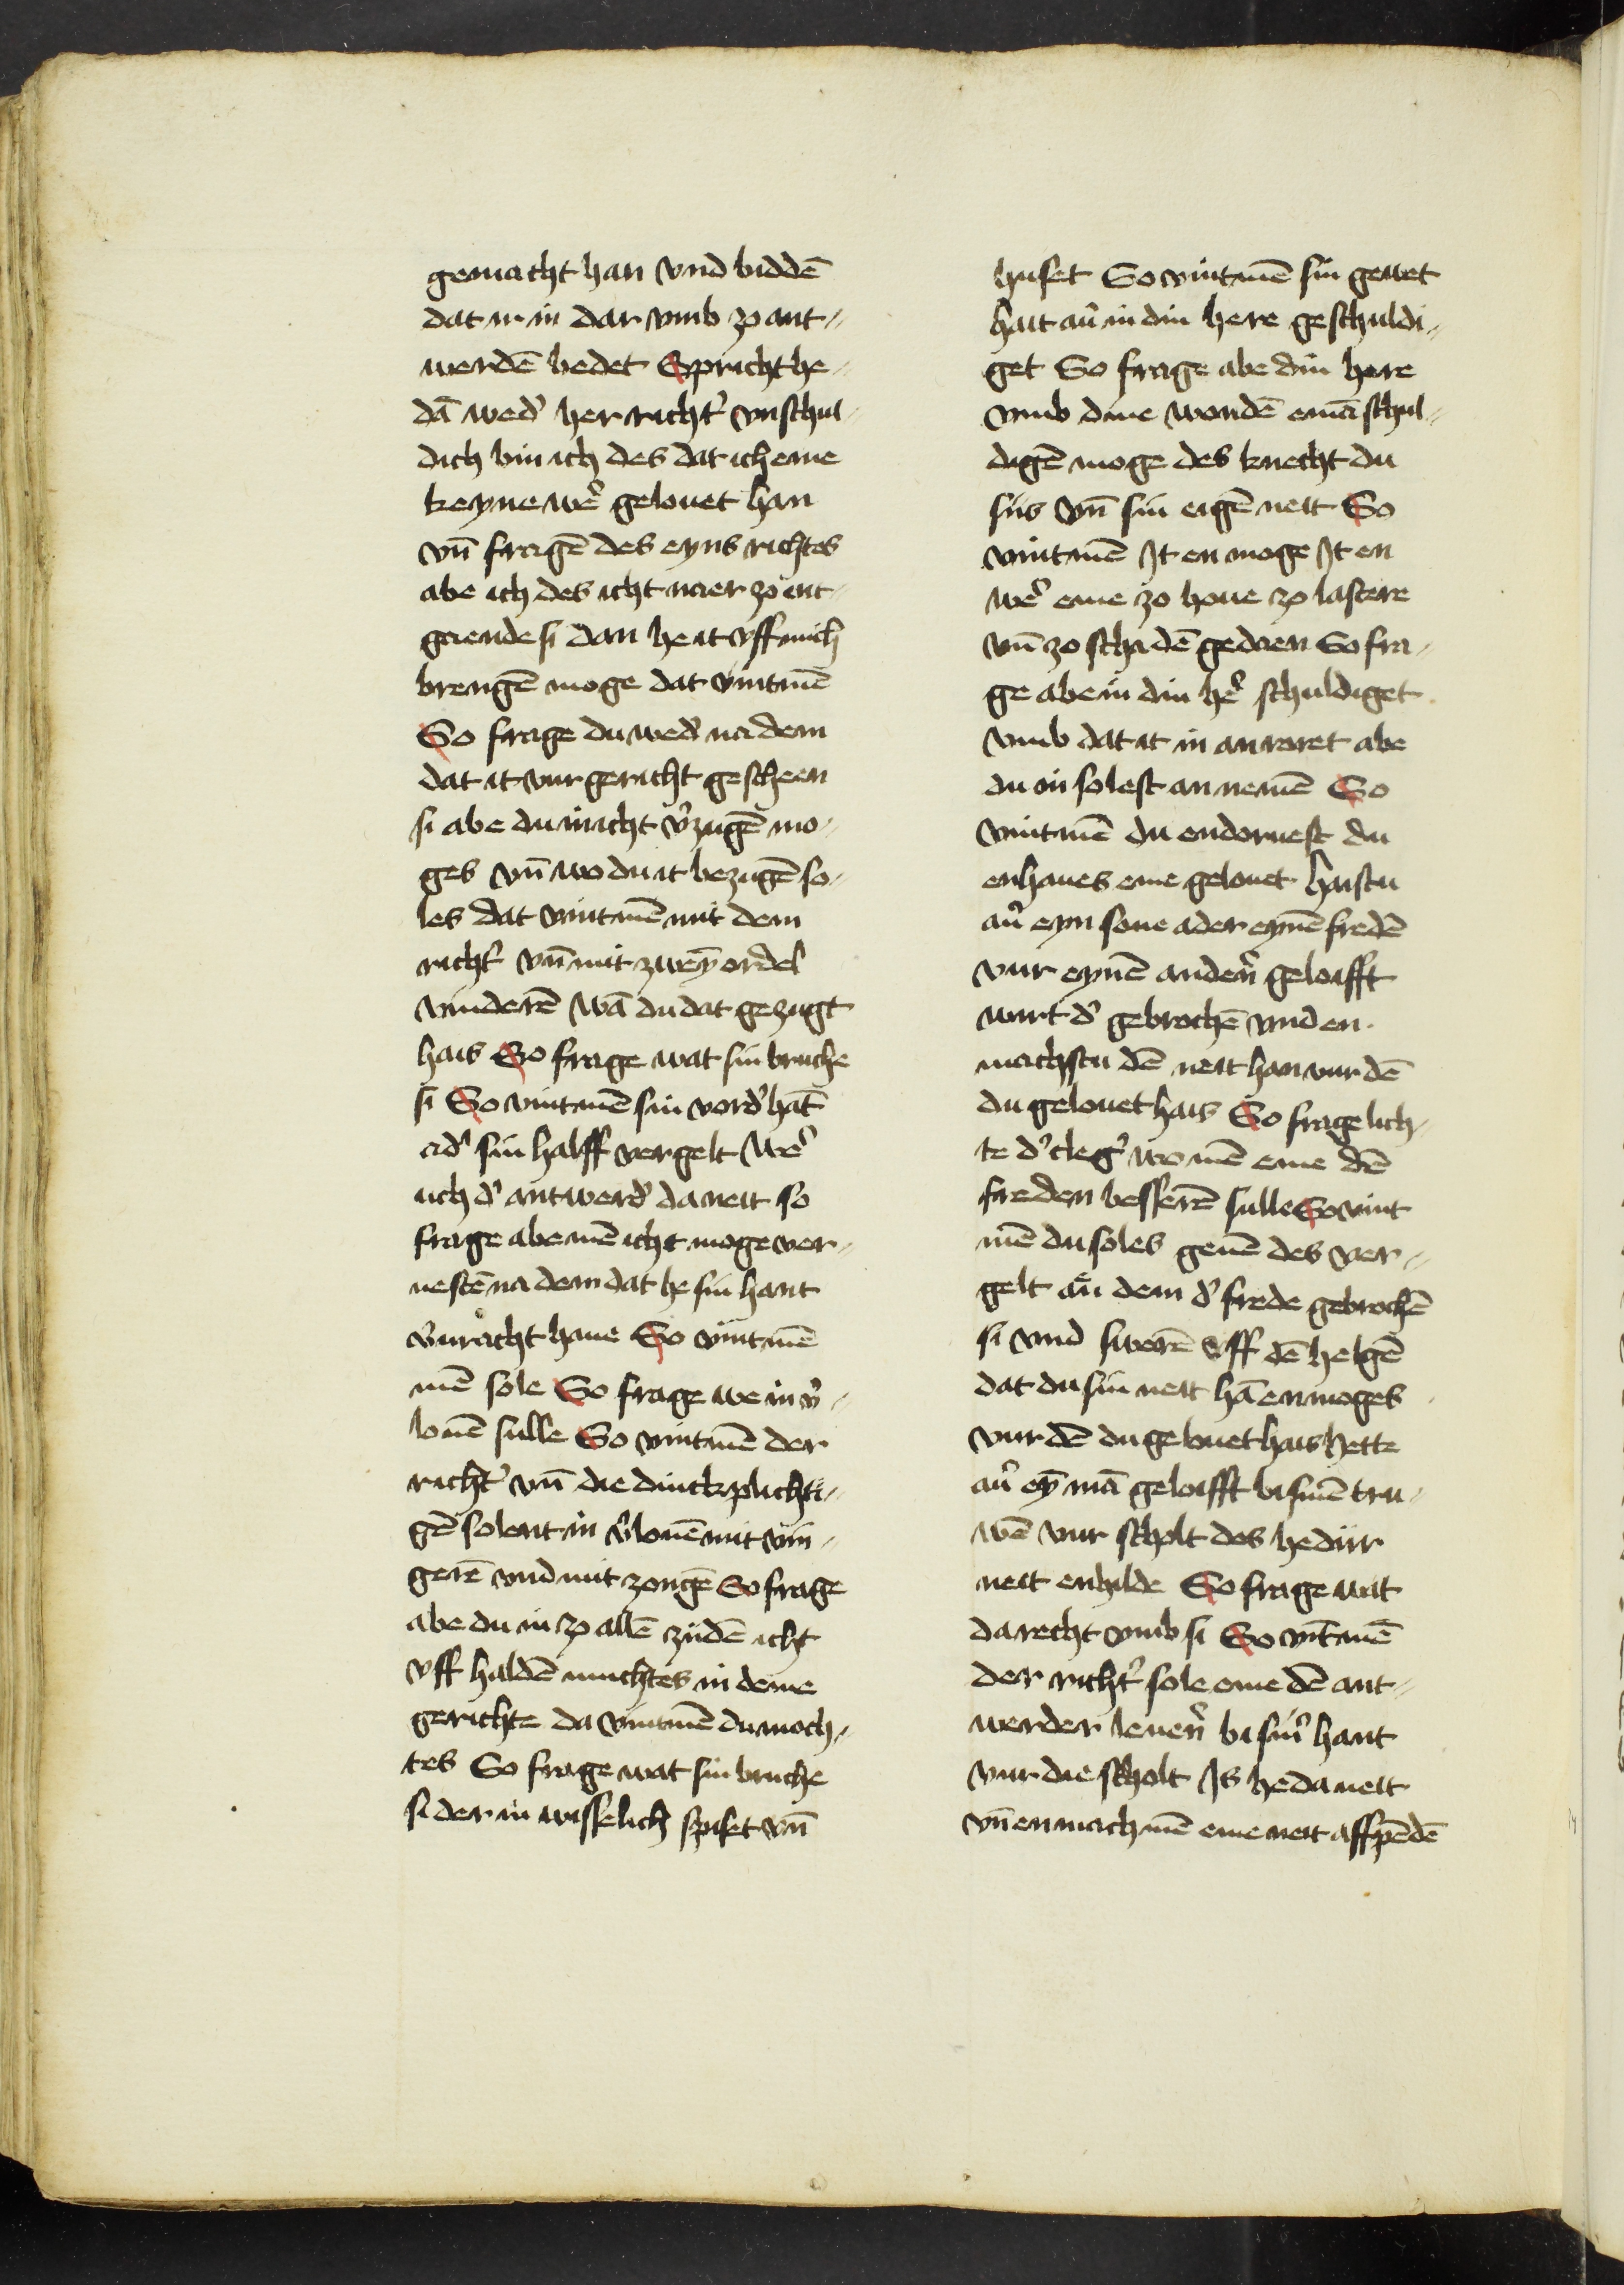 gemacht han vnd biddē
dat ir in dar vmb zo ant⸗
werdē bedet Spricht he⸗
dā wedʼ her richtʼ vnschul⸗
dich bin ich des dat ich eme
keyne wēʼ gelouet han
vn̄ fragē des eyns richtes
abe ich des icht naer zo int⸗
gaende si dan he it vff mich
brengē moge dat vintmē
So frage du wedʼ na dem
dat it vur gericht gescheen
si abe du in icht vʼzugē mo⸗
ges vn̄ wo du it bezugē so⸗
les dat vintmē mit dem
richtʼ vn̄ mit zweȳ ordel
vinderē wā du dat gezugt
hais So frage wat sin bruche
si So vintmē sin vordʼ hāt
adʼ sin halff vergelt wēʼ
uch dʼ antwerdʼ da neit so
frage abe mē icht moge ver⸗
vestē na dem dat he sin hant
vʼuracht haue So vintmē
mē sole So frage we in vʼ⸗
louē sulle So vintmē der
richtʼ vn̄ die dinckplichti⸗
gē solent in vʼlouē mit vin⸗
gerē vnd mit zongē So frage
abe du in zo allē zijdē icht
vff haldē muchtes in deme
gerichte da vintmē du moch⸗
tes So frage wat sin bruche
si der in wisselich spiset vn̄
huset So vintmē sin gewet
hait auʼ in din here geschuldi⸗
get So frage abe din here
vmb dine wondē emā schul⸗
digē moge des knecht du
siis vn̄ sin eigē neit So
vintmē It en moge It en
wēʼ eme zo houe zo lastere
vn̄ zo schadē gedaen So fra⸗
ge abe in din hēʼ schuldiget
vmb dat it in anroret abe
du in solest an nemē So
vintmē du endoruest du
enhaues eme gelouet haistu
auʼ eyn sone ader eynē fredē
vur eynē andern̄ geloifft
wirt dʼ gebrochē vnd en
machstu dē neit han vur dē
du gelouet hais So frage lich⸗
te dʼ clegʼ wo mē eme dē
freden besserē sulle So vint
mē du soles geuē des ver⸗
gelt an dem dʼ frede gebrochē
si vnd swerē vff dē helgē
dat du sin neit hā enmoges
vur dē du gelouet hais hette
auʼ eȳ mā geloifft bi sinē tru⸗
wē vur scholt des he dir
neit enhilde So frage wat
da recht vmb si So vītmē
der richtʼ sole eme dē ant⸗
werder leuern̄ bi sinʼ hant
vur die scholt Is he da neit
vn̄ enmach mē eme neit affpēdē